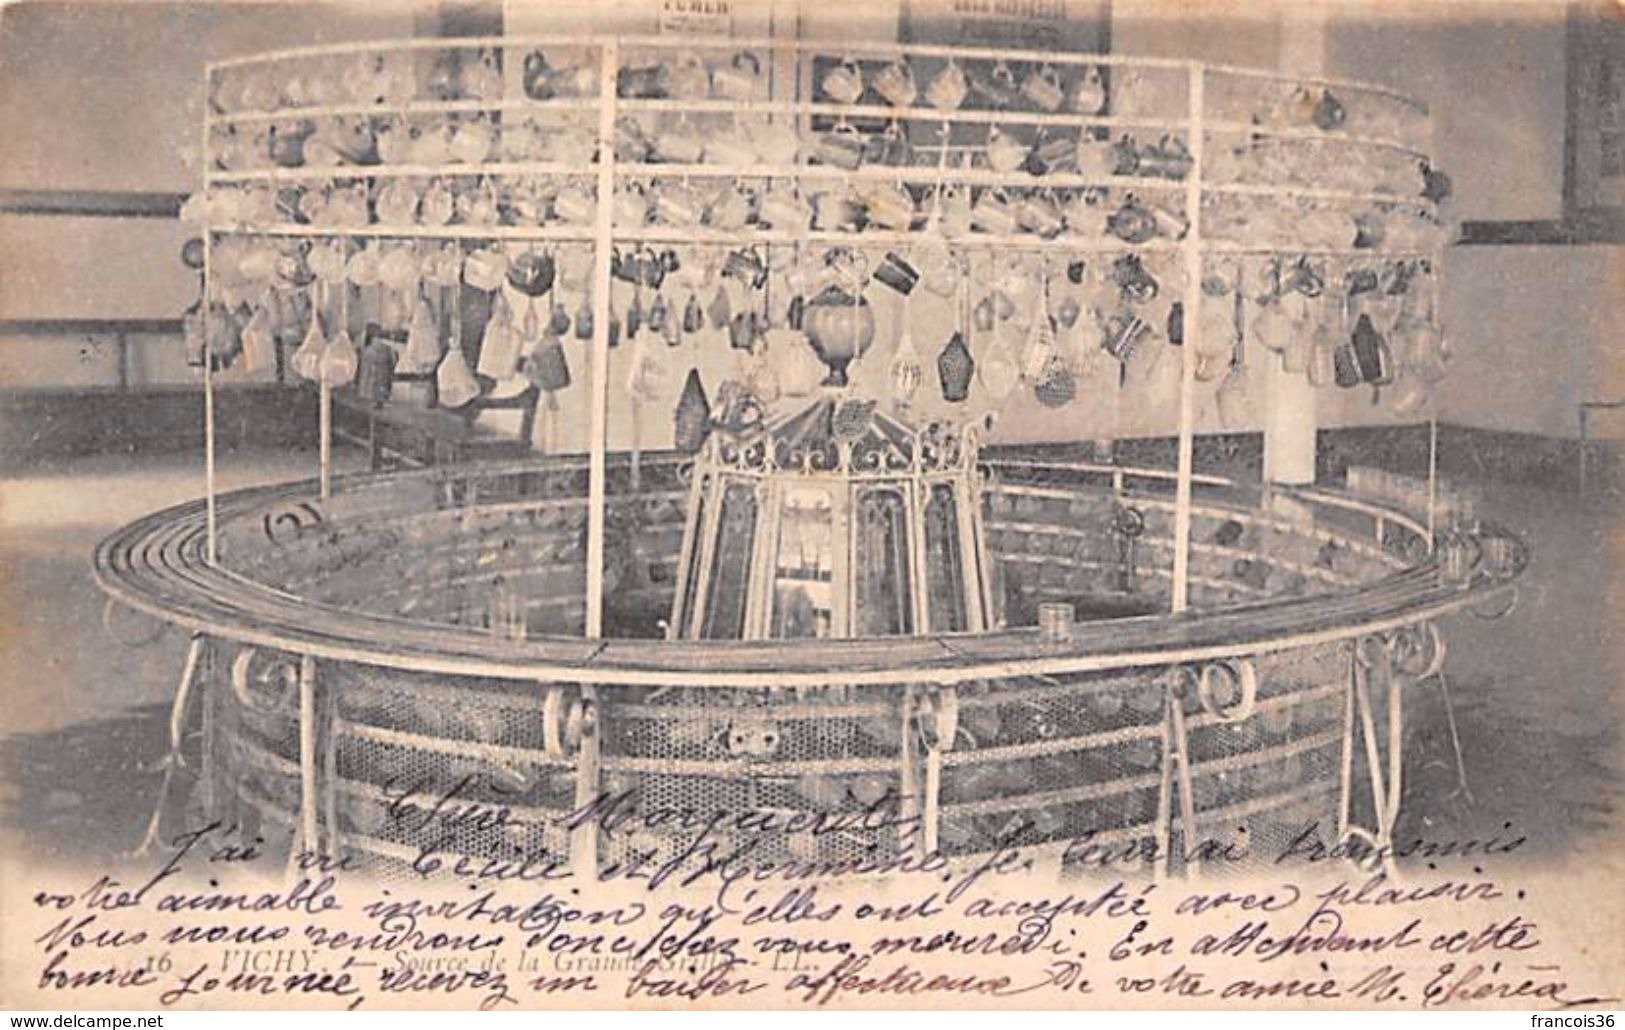 Chère Marguerite,
J'ai vu Cécile et Hermine. Je leur ai transmis
votre aimable invitation qu'elles ont acceptée avec plaisir.
Nous nous rendrons donc chez vous mercredi. En attendant cette
16 VICHY. — Source de la Grande Grille - LL.
bonne journée, recevez un baiser affectueux De votre amie M. Thérèse
www.delcampe.net
francois36